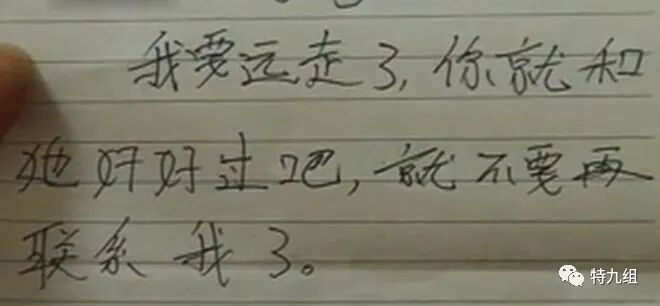 我要远走了,你就和
她好好过吧,就不要再
联系我了。
特九组